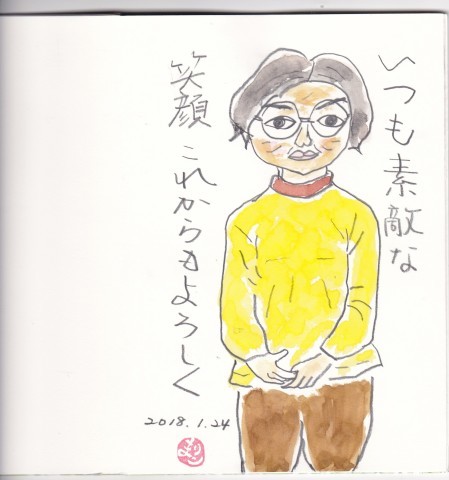 いつも素敵な
笑顔 これからもよろしく
2018.1.24